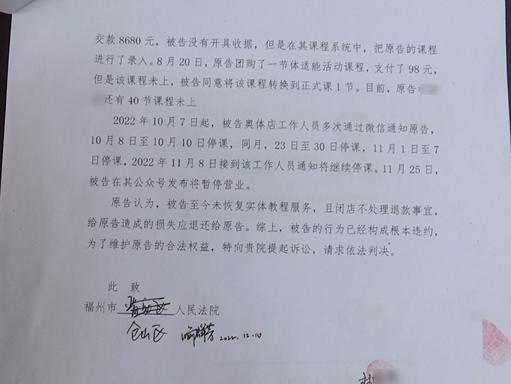 交款 8680 元，被告没有开具收据，但是在其课程系统中，把原告的课程
进行了录入。8 月 20 日，原告团购了一节体适能活动课程，支付了 98 元，
但是该课程未上，被告同意将该课程转换到正式课 1 节。目前，原告
还有 40 节课程未上
2022 年 10 月 7 日起，被告奥体店工作人员多次通过微信通知原告，
10 月 8 日至 10 月 10 日停课，同月，23 日至 30 日停课，11 月 1 日至 7
日停课，2022 年 11 月 8 日接到该工作人员通知将继续停课。11 月 25 日，
被告在其公众号发布将暂停营业。
原告认为，被告至今未恢复实体教程服务，且闭店不处理退款事宜，
给原告造成的损失应退还给原告。综上，被告的行为已经构成根本违约，
为了维护原告的合法权益，特向贵院提起诉讼，请求依法判决。
此 致
福州市 人民法院
仓山区 2022.12.10